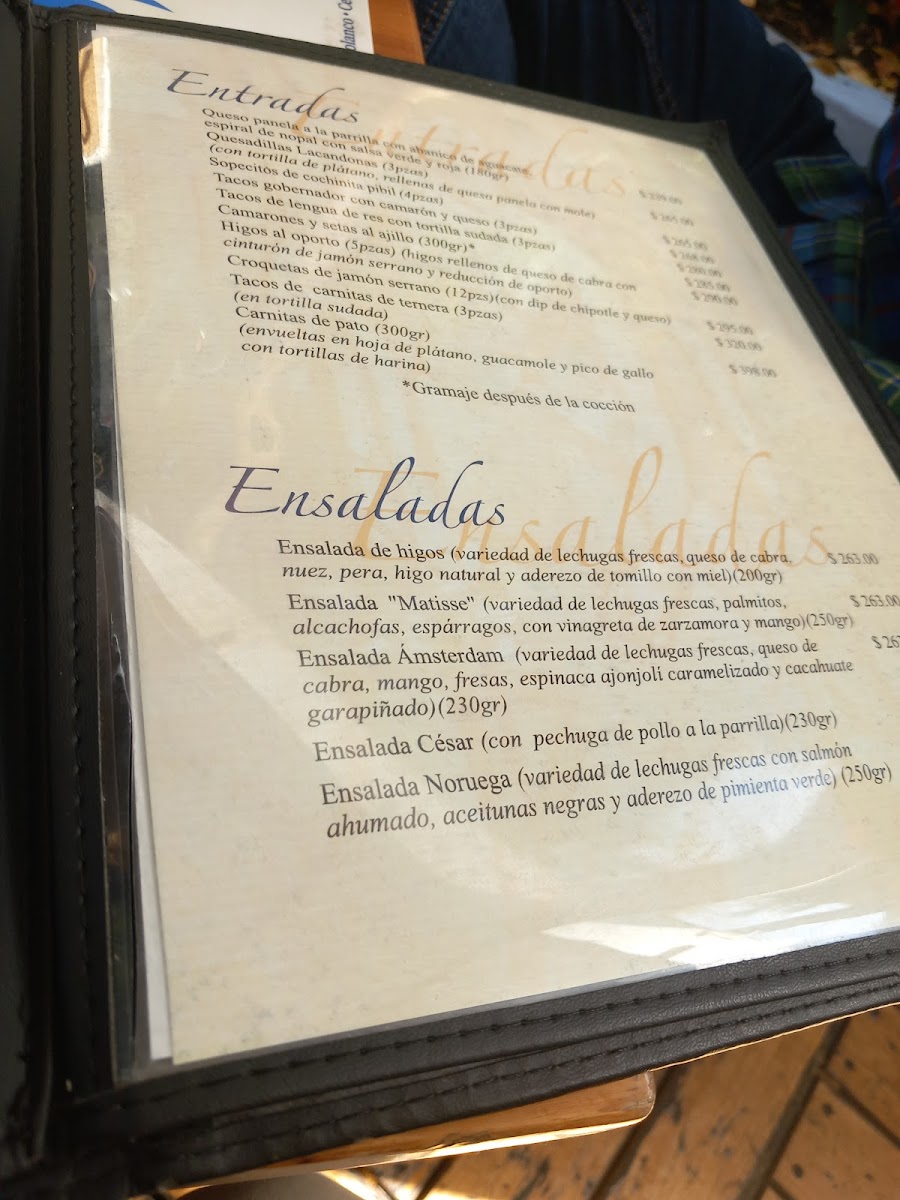 blanco • Ce
Entradas
Queso panela a la parrilla con abanico de aguacate,
espiral de nopal con salsa verde y roja (180gr)
Quesadillas Lacandonas (3pzas)
(con tortilla de plátano, rellenas de queso panela con mole)
Sopecitos de cochinita pibil (4pzas)
Tacos gobernador con camarón y queso (3pzas)
Tacos de lengua de res con tortilla sudada (3pzas)
Camarones y setas al ajillo (300gr)*
Higos al oporto (5pzas) (higos rellenos de queso de cabra con
cinturón de jamón serrano y reducción de oporto)
Croquetas de jamón serrano (12pzs)(con dip de chipotle y queso)
Tacos de carnitas de ternera (3pzas)
(en tortilla sudada)
Carnitas de pato (300gr)
(envueltas en hoja de plátano, guacamole y pico de gallo
con tortillas de harina)
$ 265.00
$ 265.00
$ 268.00
$ 280.00
$ 285.00
$ 290.00
$ 295.00
$ 320.00
$ 398.00
*Gramaje después de la cocción
Ensaladas
Ensalada de higos (variedad de lechugas frescas, queso de cabra, $ 263.00
nuez, pera, higo natural y aderezo de tomillo con miel)(200gr)
Ensalada "Matisse" (variedad de lechugas frescas, palmitos, $ 263.00
alcachofas, espárragos, con vinagreta de zarzamora y mango)(250gr)
Ensalada Ámsterdam (variedad de lechugas frescas, queso de $ 26
cabra, mango, fresas, espinaca ajonjolí caramelizado y cacahuate
garapiñado)(230gr)
Ensalada César (con pechuga de pollo a la parrilla)(230gr)
Ensalada Noruega (variedad de lechugas frescas con salmón
ahumado, aceitunas negras y aderezo de pimienta verde) (250gr)